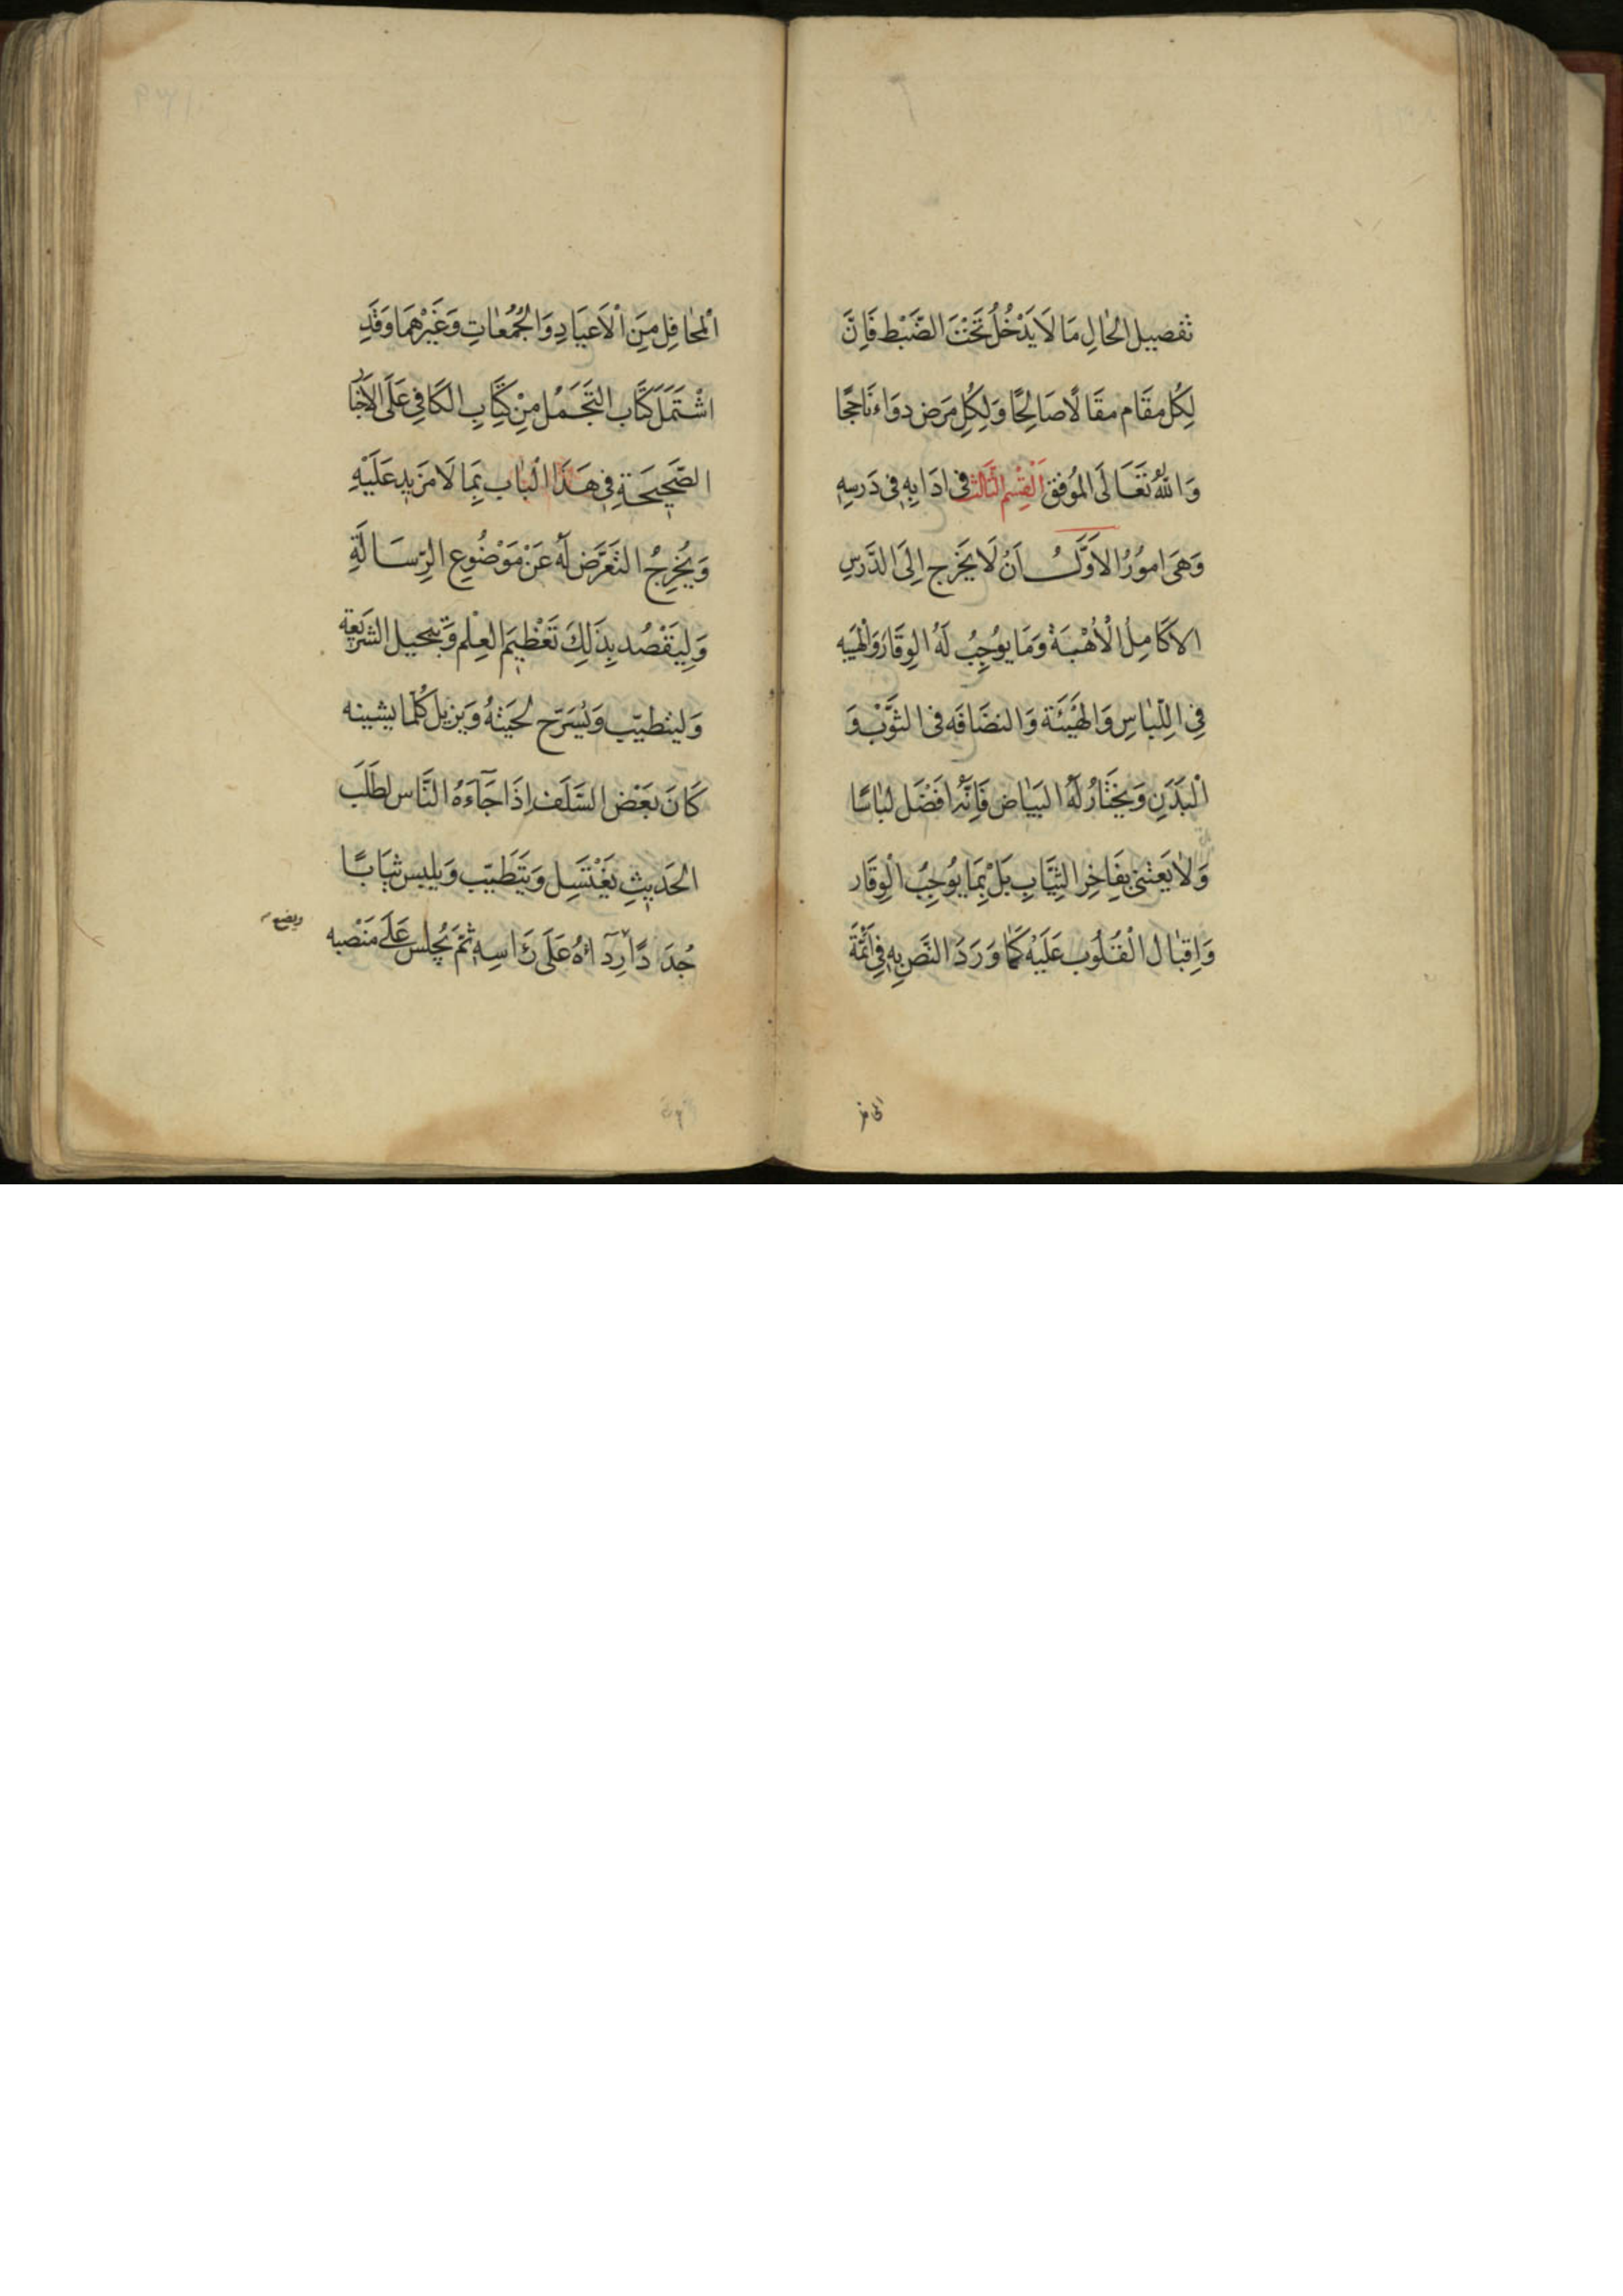 تفصيل الحالِ مَا لَا يَدْخُلُ تَحْتَ الضَّبْط فَاِنَّ
لِكُلِ مقَام مقَالًا صَالِحًا وَلِكُلِ مَرَض دوَاء نَاجحًا
وَاللّٰهُ تَعَالَى المُوفق اَلْقِسْم الثَّالث فى ادَابِهِ فِى دَرسِهِ
وَهىَ امُورُ الاَوَّلُ اَنْ لَا يَخرج اِلَى الدَّرسِ
الا كَامِلُ الْاُهْبَةْ وَمَا يوُجِبُ لَهُ الوِقَارَ وَالْهَيبه
فِى اللِّبٰاسِ وَالهَيْئَة وَالنضَافَه فى الثَّوْبْ وَ
الْبَدَنِ وَيَختَارُ لَهُ البَيَاض فَاِنَّهُ افَضَل لبٰاسًا
وَلاٰ يَعتنى بِفَاخِرِ الثِيَّابِ بَلْ بِمَا يُوجِبُ الْوِقَار
وَاِقبٰال الْقُلُوب عَلَيْه كَمٰا وَرَدَ النَصِ بِهِ فِى اَئمَّة
المحافر
اَلمَحٰافِل مِنَ اْلاَعيَادِ وَالجُمُعٰاتِ وَغَيْرْهمَا وَقَدِ
اشْتَمَلَ كتَاب التَجَمُّل مِنْ كِتَابِ الكَافِى عَلَى الاَخبَا
الصَّحِيحَةِ فِى هَذَا الْبٰاب بِمَا لَا مَزَيدِ عَلَيْهِ
وَيُخرِجُ التَعَرَّض لَهُ عَنْ مَوْضُوعِ الرِّسَالَةِ
وَلِيَقْصُد بِذَلِكَ تَعَظيمَ العِلْم وَتبجيل الشَريَعة
وَليتطيّب وَيُسَرّح لحَيَتهُ وَيزيل كُلّما يشينه
كَانَ بَعَض السَّلَف اِذَا جَآءَهُ النَّاس لطَلَبِ
الحَديِثِ يَغْتَسِل وَيَتَطَيّب وَيلبس ثيَابًا
جُدَدًا رِدَآئهُ عَلَى رَاسِهِ ثمَ يَجُلِس عَلَى مَنْصبه
ويضع